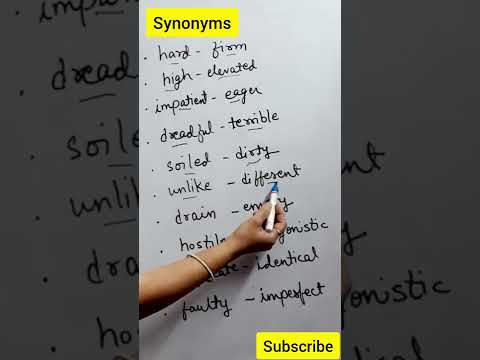 Synonyms
hard - firm
high - elevated
impatient - eager
dreadful - terrible
soiled - dirty
unlike - different
drain -
- identical
faulty - imperfect
Subscribe